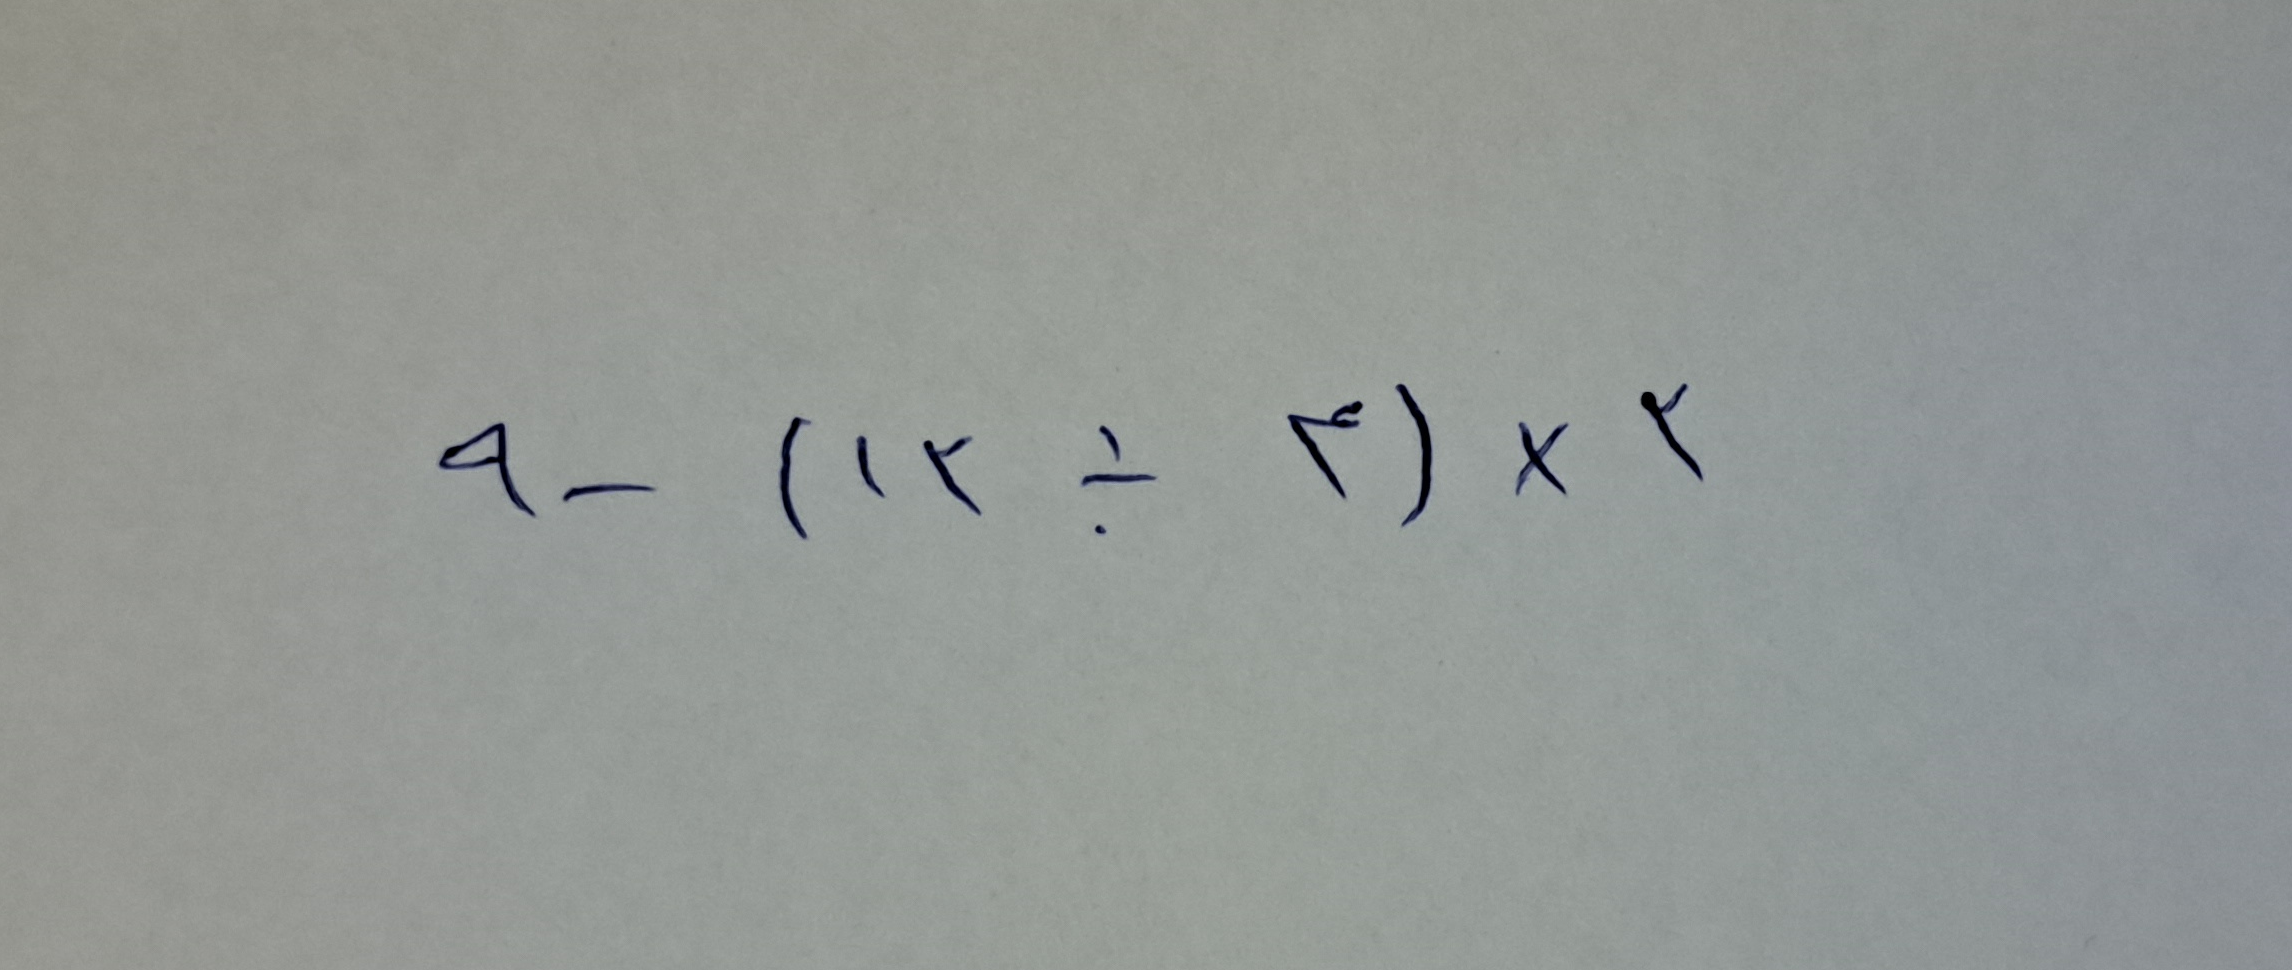 ۹ - (۱۲ ÷ ۴) × ۲